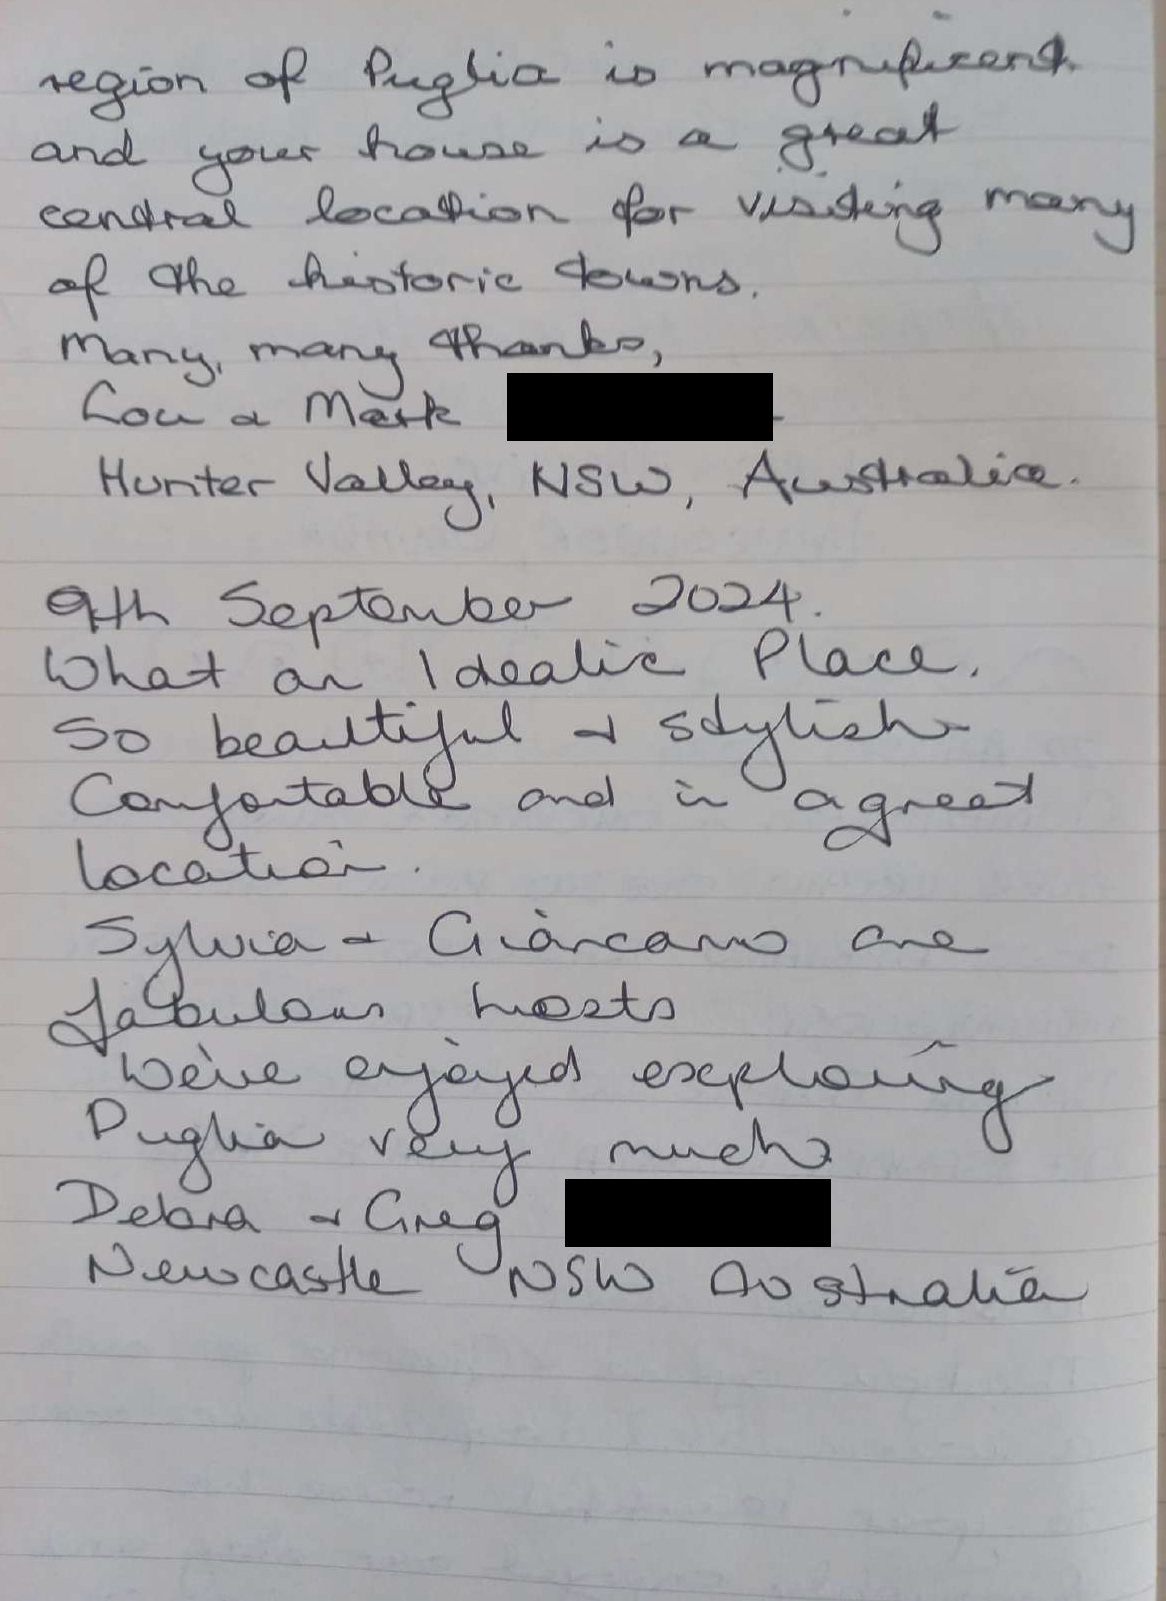 region of Puglia is magnificent
and your house is a great
central location for visiting many
of the historic towns.
Many, many thanks,
Lou & Mark
Hunter Valley, NSW, Australia.
9th September 2024.
What an Idealic Place.
So beautiful & stylish
Comfortable and in a great
location.
Sylvia & Giancarno are
fabulous hosts
We've enjoyed exploring
Puglia very much
Debra & Greg
Newcastle NSW Australia